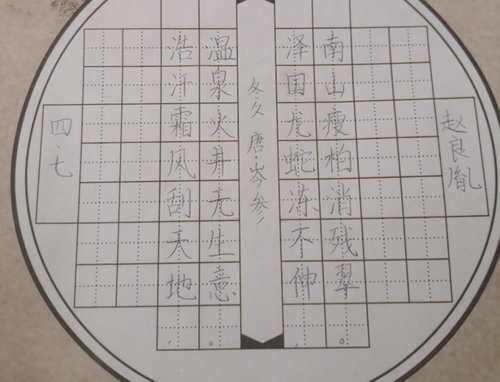 四·七
浩汗霜风刮天地，
温泉火井无生意。
冬夕 唐·岑参
泽国虎蛇冻不伸，
南山瘦柏消残翠。
赵良胤